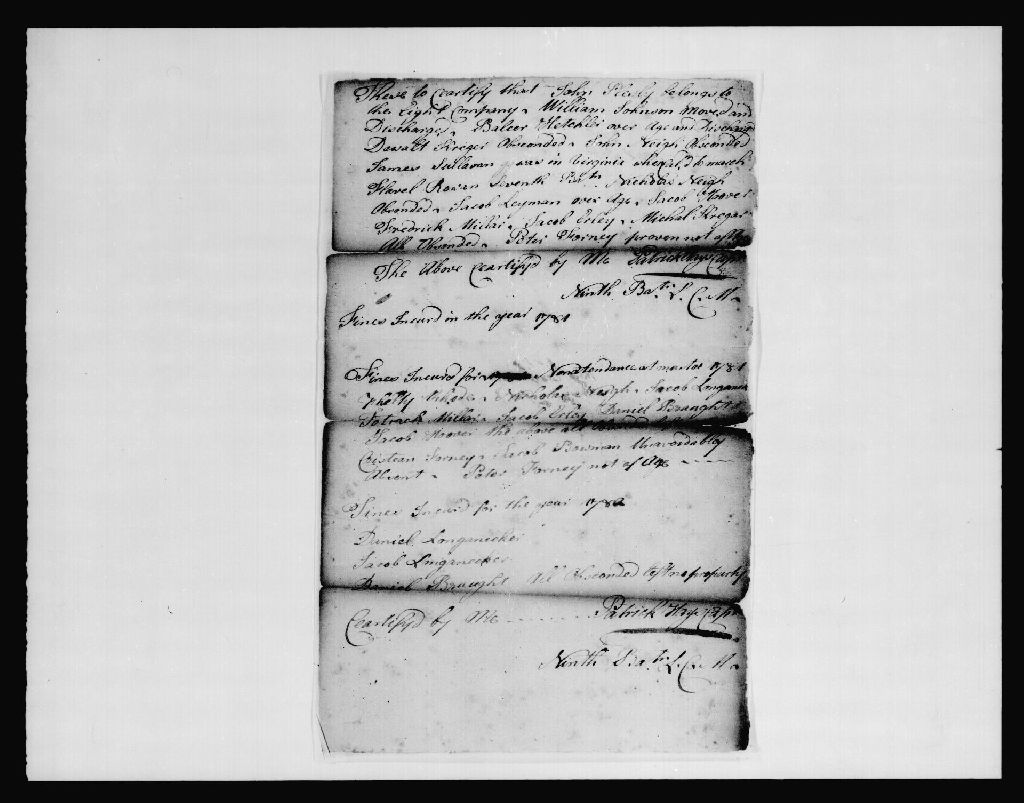 These to Ceartify that John belongs to
the Eight Company. William Johnson moved and
Discharged. Balser Hetchler over Age and Discharged
Dewalt Kreger Absconded. John Neigh Absconded
James Sullavan was in Virginie when to march
Flavel Rowan Seventh Batn Nicholas Neigh
Absonded. Jacob Leyman over Age. Jacob Hoover
Fredrick Millar. Jacob Erley. Michal Kreger
All Absonded. Peter Forney proven not of Age
The Above Ceartifyd by Me Patrick Hays Captn
Ninth Batn L. C. M.
Fines Incurd in the year 1781
Fines Incurd for Nonatendance at muster 1781
Nicholas Neigh. Jacob Longanecker
Patrick Millar. Jacob Erley Daniel Braught
Jacob Hoover the above all
Cristean Forney. Jacob Bowman Unavoidabley
Absent. Peter Forney not of Age
Fines Incurd for the year 1782
Daniel Longanecker
Jacob Longanecker
Daniel Braught All Absconded left no property
Ceartifyd by Me Patrick Hays Captn
Ninth Batn L. C. M.